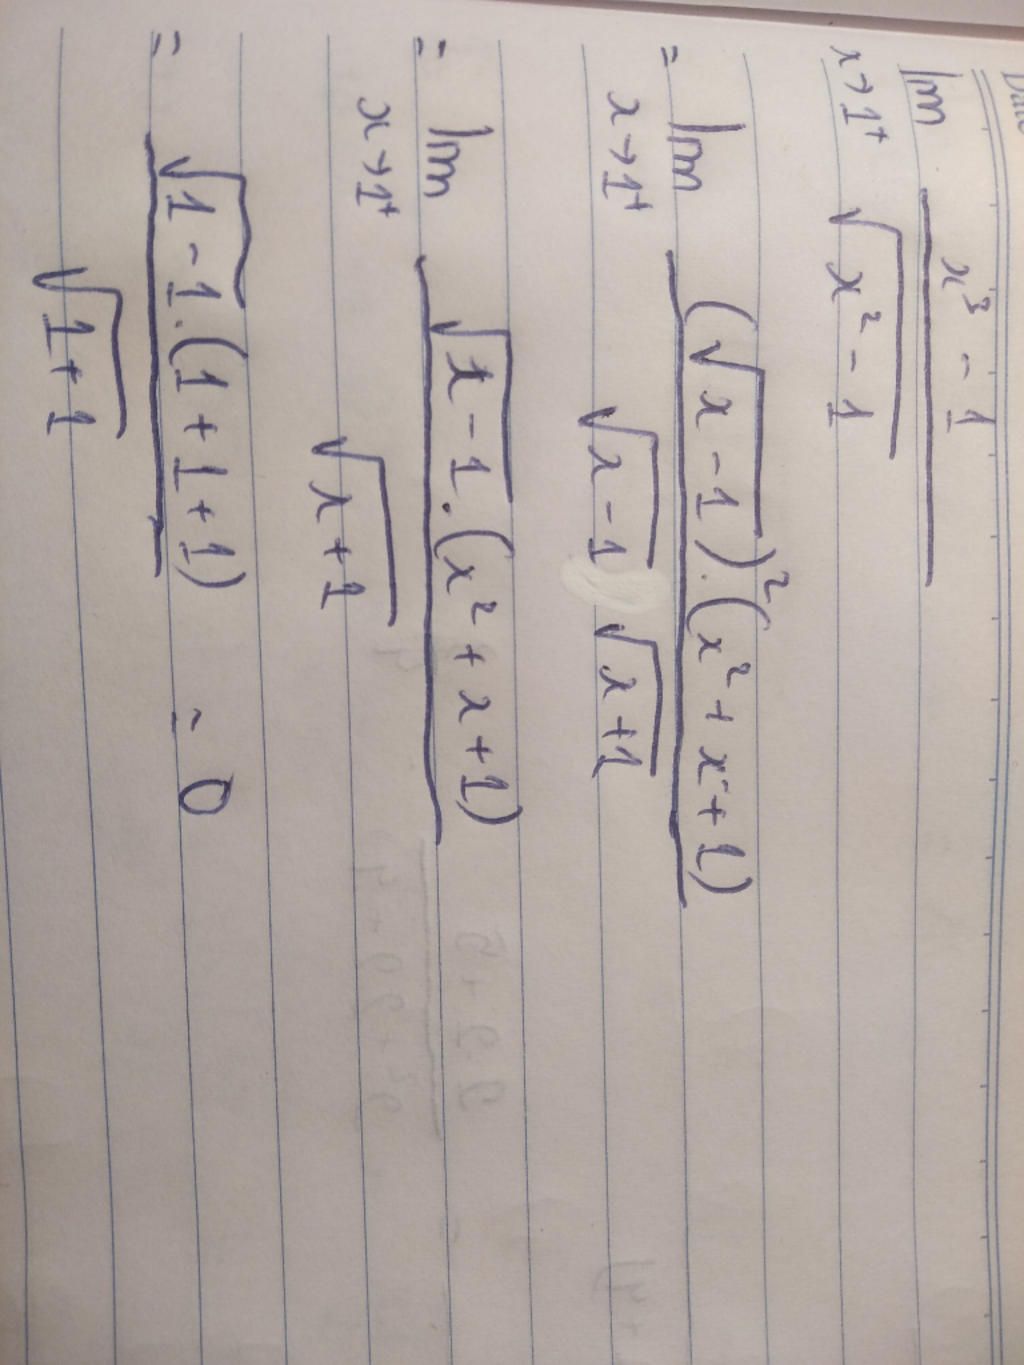 Date
lim x³ - 1
x→1⁺ √x² - 1
= lim (√x - 1)² · (x² + x + 1)
x→1⁺ √x - 1 √x + 1
= lim √x - 1 · (x² + x + 1)
x→1⁺ √x + 1
= √1 - 1 · (1 + 1 + 1) = 0
√1 + 1